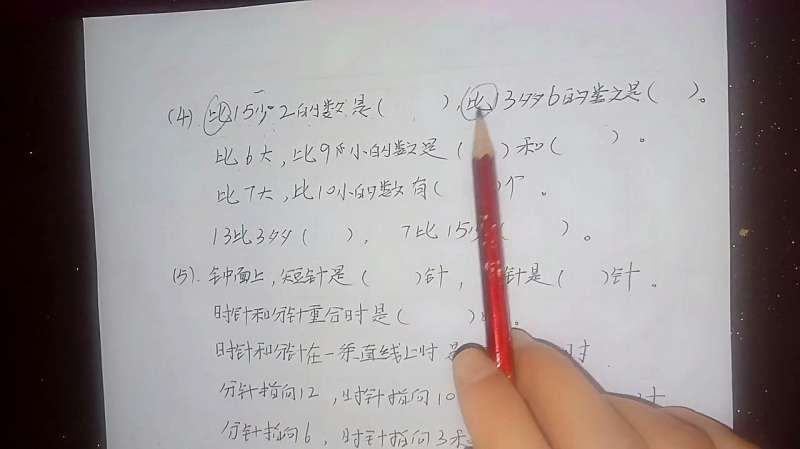 (4) 比15少2的数是(    ),比13多6的数是(    )。
比6大,比9小的数是(    )和(    )。
比7大,比10小的数有(    )个。
13比3多(    ), 7比15少(    )。
(5). 钟面上,短针是(    )针, 针是(    )针。
时针和分针重合时是(    )。
时针和分针在一条直线上时是 时
分针指向12,时针指向10
分针指向6,时针指向3